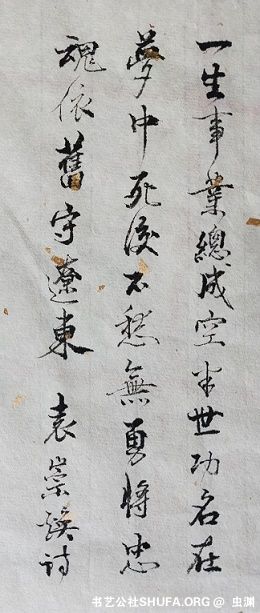 一生事業總成空半世功名在
夢中死後不愁無勇將忠
魂依舊守遼東 袁崇煥詩
书艺公社SHUFA.ORG @ 虫渊